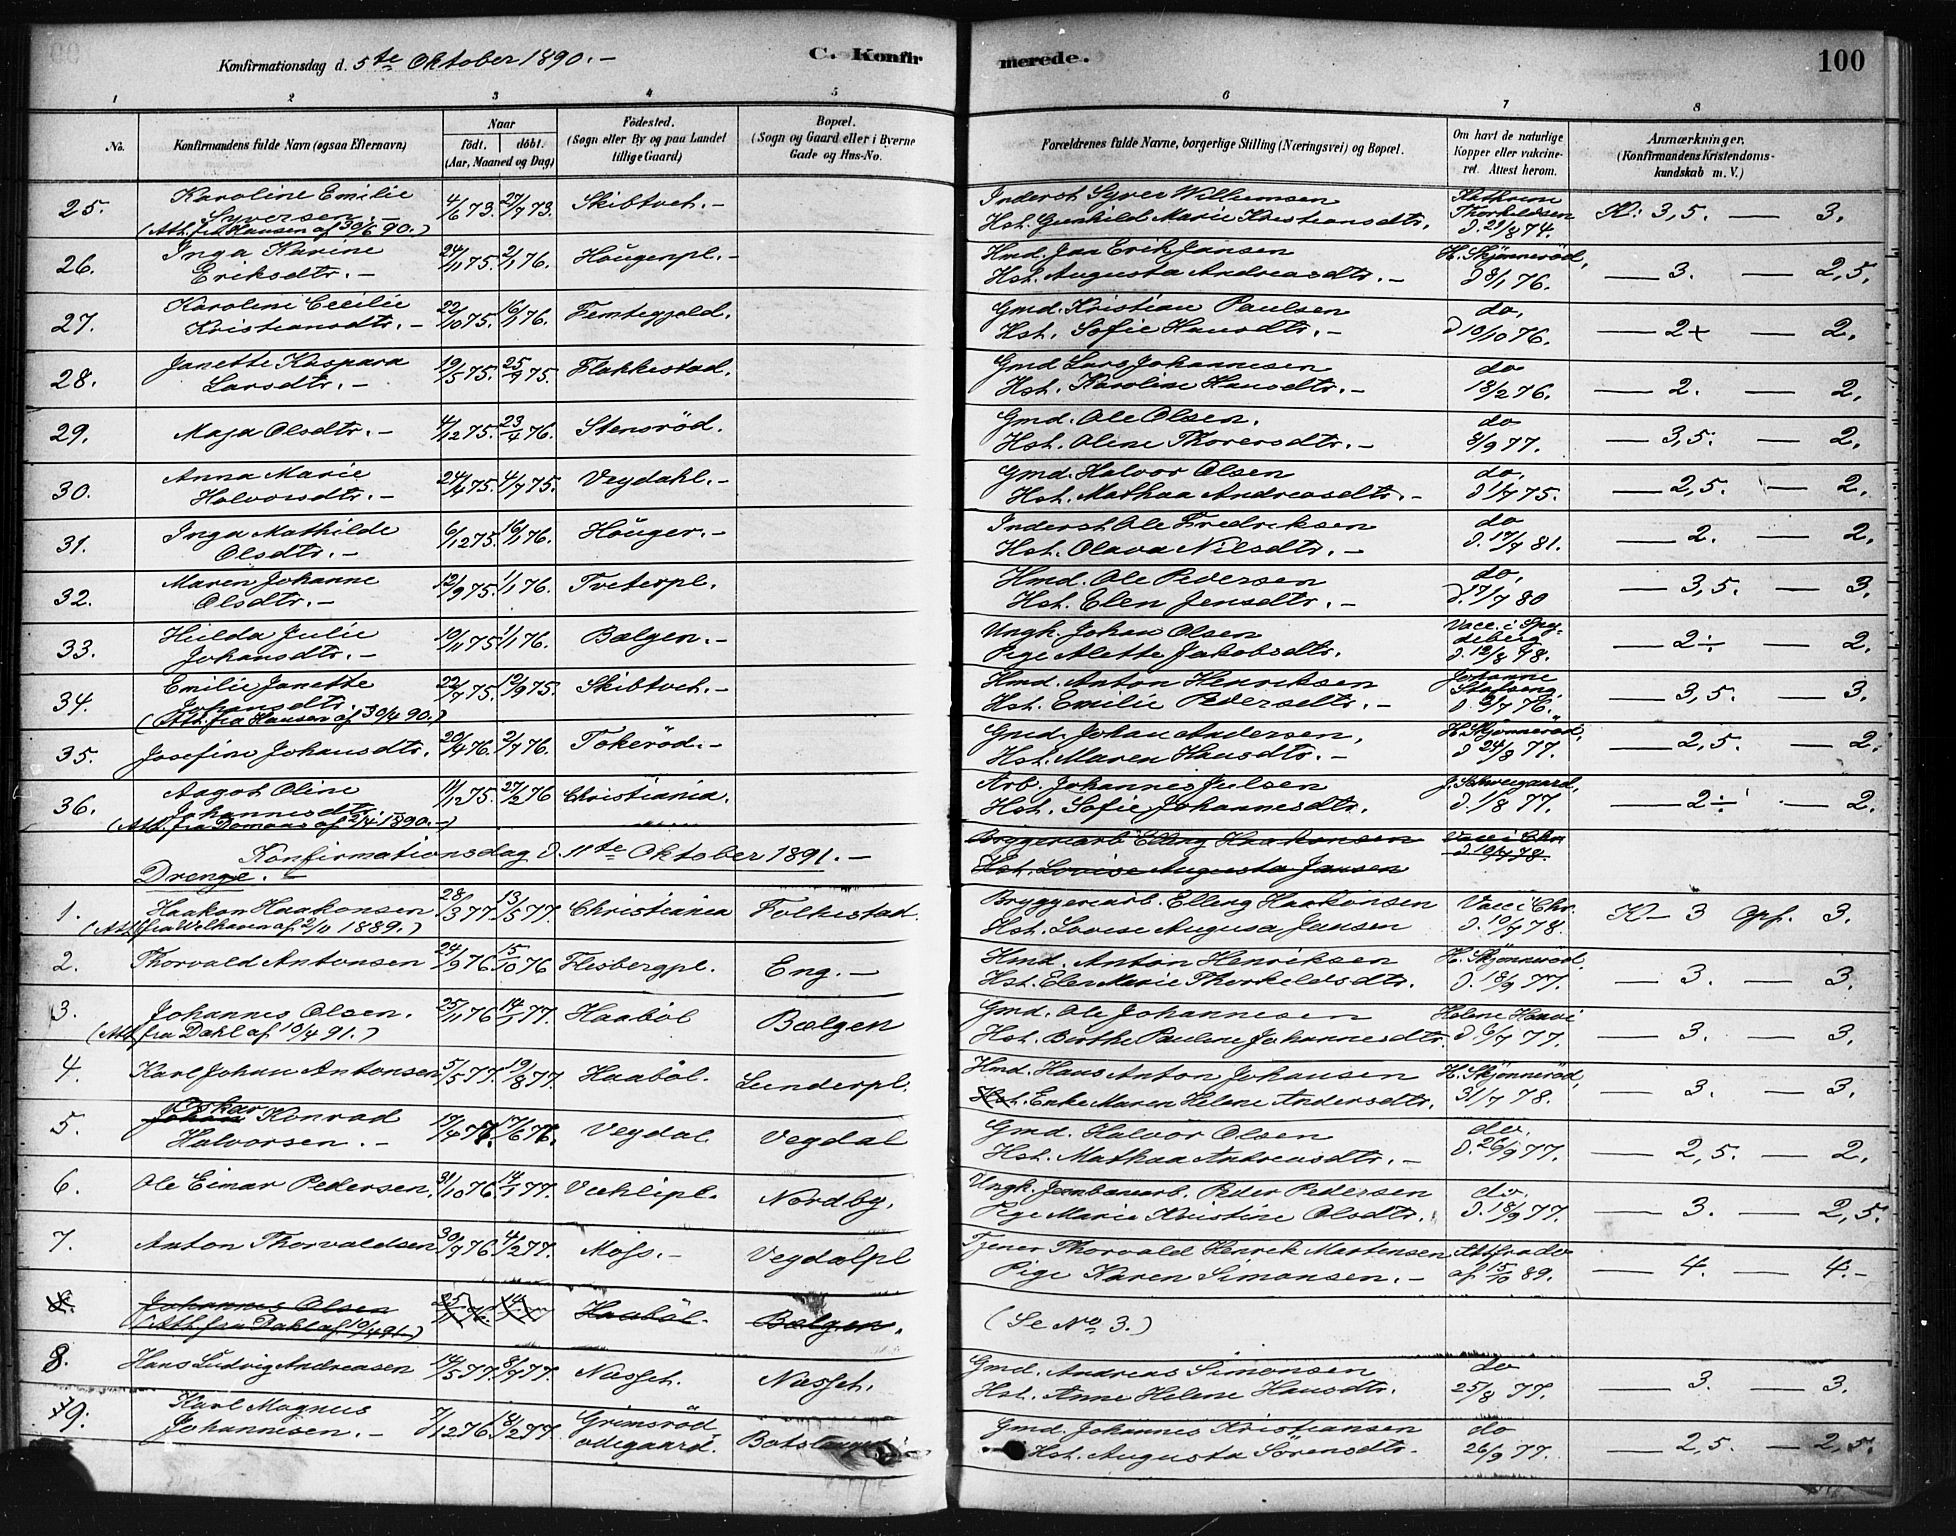 Konfirmationsdag d. 5te Oktober 1890. –
C. Konfirmerede.
100
1 2 3 4 5 6 7 8
No.
Konfirmandens fulde Navn (ogsaa Efternavn)
Naar
födt. döbt.
(Aar, Maaned og Dag)
Födested.
(Sogn eller By og paa Landet
tillige Gaard)
Bopæl.
(Sogn og Gaard eller i Byerne
Gade og Hus-No.
Forældrenes fulde Navne, borgerlige Stilling (Næringsvei) og Bopæl.
Om havt de naturlige
Kopper eller vakcine-
ret. Attest herom.
Anmærkninger.
(Konfirmandens Kristendoms-
kundskab m. V.)
25. Karoline Emilie 4/6 73. 27/7 73. Skibtvet. – Inderst Syver Willumsen Kathrine
Syversen. – Hst. Gunhild Marie Kristiansdtr. Thorkeldsen K: 3,5. — 3.
(Att. fra Hansen af 30/6 90.) d. 21/8 74.
26. Inga Karine 24/11 75. 2/1 76. Hougenpl. – Hmd. Jan Erik Jansen H. Skjønnerød,
Eriksdtr. – Hst. Augusta Andreasdtr. – d 8/1 76. — 3. — 2,5.
27. Karoline Cecilie 22/10 75. 16/1 76. Femtegjeld. Gmd. Kristian Paulsen do.
Kristiansdtr. – Hst. Sofie Hansdtr. – d 10/10 76. — 2+ — 2.
28. Janette Kaspara 19/5 75. 25/9 75. Flakkestad. Gmd Lars Johannesen do
Larsdtr. – Hst. Karoline Hansdtr. – 18/2 76. — 2. — 2.
29. Maja Olsdtr. – 4/12 75. 23/4 76. Stensrød. Gmd. Ole Olsen. do
Hst. Oline Thorersdtr. – 3/9 77. — 3,5. — 2.
30. Anna Marie 24/4 75. 4/7 75. Vegdahl. – Gmd. Halvor Olsen do.
Halvorsdtr. – Hst. Mathea Andreasdtr. – d 1/7 75. — 2,5. — 2.
31. Inga Mathilde 6/12 75. 16/1 76. Houger. – Inderst Ole Fredriksen do
Olsdtr. – Hst. Olava Nilsdtr. – d. 17/7 81. — 2. — 2.
32. Maren Johanne 12/9 75. 1/1 76. Tveterpl. Hmd. Ole Pedersen do.
Olsdtr. – Hst. Elen Jensdtr. – d. 17/7 80 — 3,5. — 3.
33. Hilda Julie 19/11 75. 1/1 76. Bælgen. – Ungk. Johan Olsen Vacc. i Spy-
Johansdtr. – Pige Alette Jakobsdtr. deberg
d. 12/8 78. — 2÷ — 2.
34. Emilie Janette 22/7 75. 12/9 75. Skibtvet. – Hmd. Anton Henriksen Johanne
Johansdtr. Hst. Emilie Pedersdtr. – — 3,5. — 3.
(Att. fra Hansen af 30/4 90.) d. 6/7 76.
35. Josefine Johansdtr. 20/4 76. 2/7 76. Tokerød. – Gmd. Johan Andersen, H. Skjønnerød,
Hst. Maren Hansdtr. – d 24/8 77. — 2,5. — 2.
36. Aagot Oline 11/12 75. 27/2 76 Christiania. Arb. Johannes Julsen J. Schweigaard,
Johannesdtr. Hst. Sofie Johannesdtr. d. 1/8 77. — 2÷ — 2.
(Att. fra Domaas af 2/4 1890. –)
Konfirmationsdag d. 11te Oktober 1891. – Bryggeriarb Elling Haakonsen Vacc i Chra
Drenge. – Hst. Lovise Augusta Jansen d 10/7 78.
1. Haakon Haakonsen 28/3 77. 13/5 77. Christiania Folkestad. Bryggeriarb. Elling Haakonsen Vacc i Chr.
(Att. fra Welhaven af 2/11 1889.) Hst. Lovise Augusa Jansen d. 10/7 78. K – 3 Opf. 3.
2. Thorvald Antonsen 24/9 76 15/10 76 Flesbergpl. Eng. – Hmd. Anton Henriksen H. Skjønnerød,
Hst. Elen Marie Thorkeldsdtr. d. 18/9 77. — 3. — 3.
3. Johannes Olsen. 25/11 76 14/1 77. Haabøl Bælgen Gmd. Ole Johannesen Helene Haavi
(Att. fra Dahl af 10/4 91.) Hst. Berthe Pauline Johannesdtr. d. 6/7 77. — 3. — 3.
4. Karl Johan Antonsen 5/5 77. 19/8 77. Haabøl. Lunderpl. Hmd. Hans Anton Johansen H. Skjønnerød,
Hst. Enke Maren Helene Andersdtr. 31/7 78. — 3. — 3.
5. Johan Oskar Konrad 17/4 76. 17/6 76. Vegdal Vegdal Gmd. Halvor Olsen do.
Halvorsen. – Hst. Mathea Andreasdtr. – d. 26/9 77. — 2,5. — 2.
6. Ole Einar Pedersen. 31/10 76. 14/1 77. Veklipl. Nordby. Ungk. Jernbanearb. Peder Pedersen do.
Pige Marie Kristine Olsdtr. d. 18/9 77. — 3. — 2,5.
7. Anton Thorvaldsen 30/7 76. 4/2 77. Moss. – Vegdalpl Tjener Thorvald Henrik Martensen Att fra do
Pige Karen Simonsen. – af 15/10 89. — 4. — 4. –
8. Johannes Olsen 25/11 76. 14. Haabøl. Bælgen.
(Att. fra Dahl af 10/4 91.) (Se No 3.)
8. Hans Ludvig Andreasen 14/5 77. 8/7 77. Næsset. Næsset. Gmd. Andreas Simonsen do
Hst. Anne Helene Hansdtr. 25/8 77. — 3. — 3.
9. Karl Magnus 7/12 76. 18/2 77. Grimsrød Gmd. Johannes Kristiansen do
Johannesen. – ødegaard. Hst. Augusta Sørensdtr. 26/9 77. — 2,5. — 2,5.